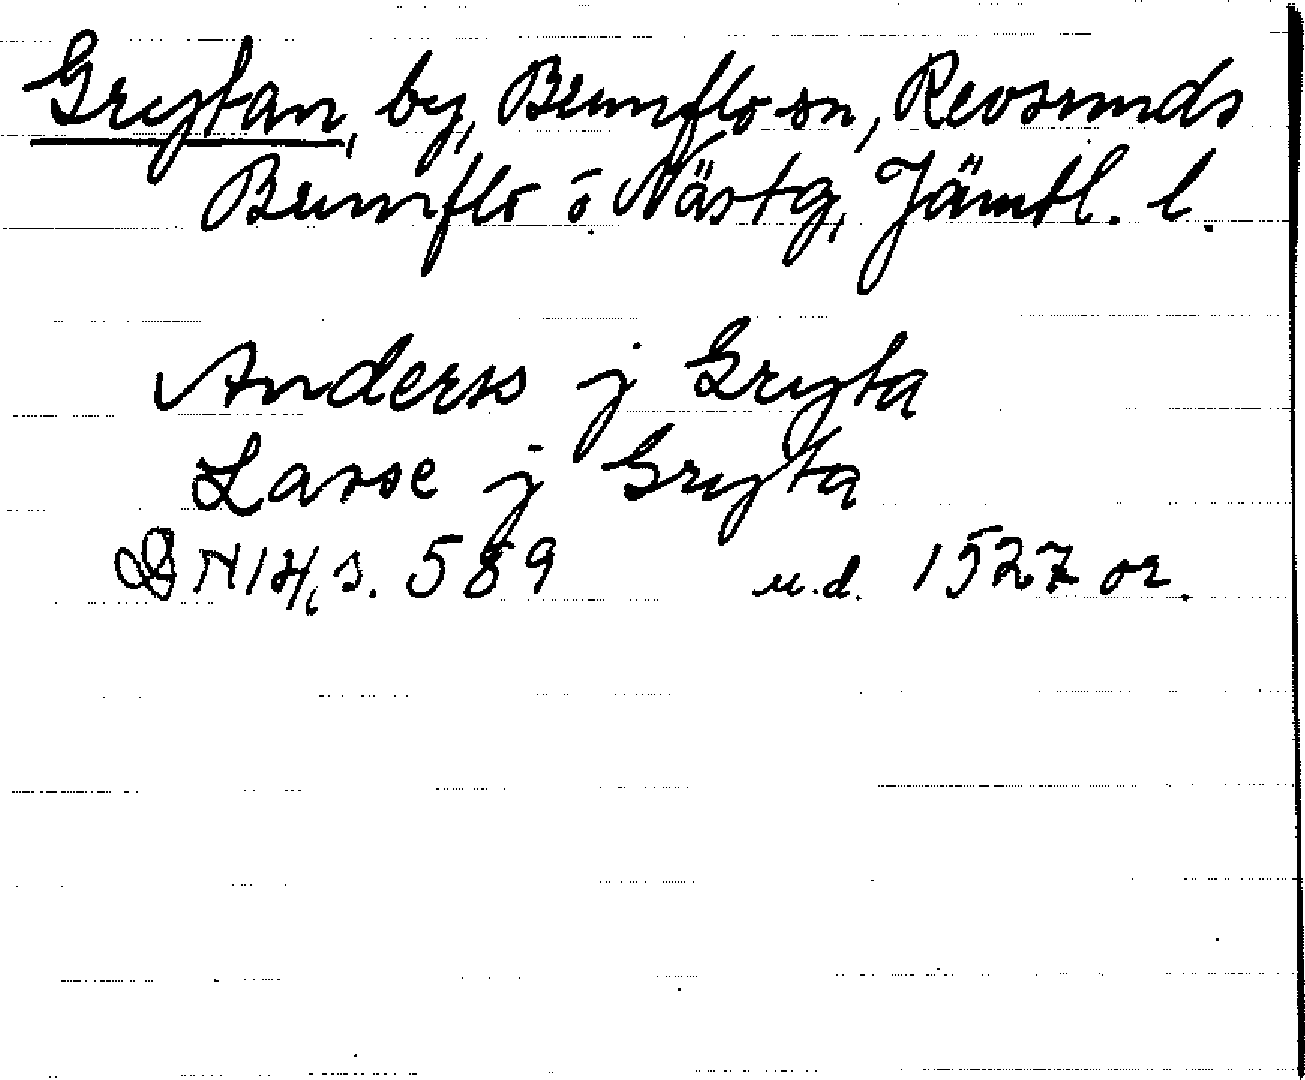 Grytan, by, Brunflo sn, Revsunds
Brunflo o. Näs tg, Jämtl. l.
Anders j Gryta
Lasse j Gryta
DN 14, s. 589 u.d. 1527 or.